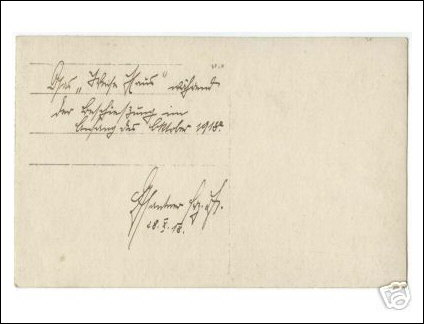 "Weiße Haus" während
der Beschießung im
Anfang des Oktober 1918.
28.X.18.